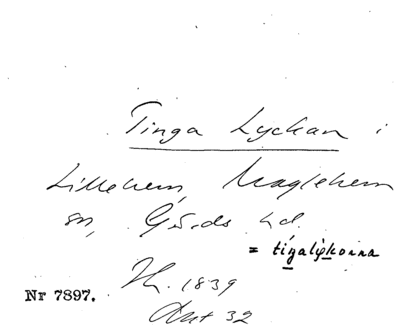 Tinga Lyckan i
Lillehem, Maglehem
sn, Gärds hd.
= tigalykorna
1839
Nr 7897.
Akt 32